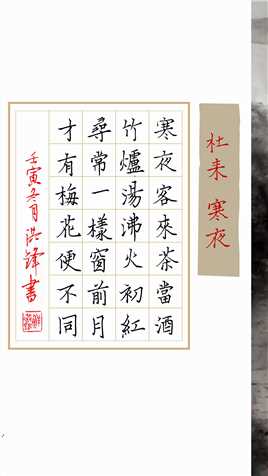 杜耒 寒夜
寒夜客來茶當酒
竹爐湯沸火初紅
尋常一樣窗前月
才有梅花便不同
壬寅冬月洪鋒書